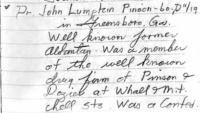 Dr. John Lumpkin Pinson - bo - D 9/19
in Greensboro, Ga.
Well known former
Atlantan. Was a member
of the well known
drug firm of Pinson &
Dozier at Whall & Mit-
chell Sts Was a Confed.